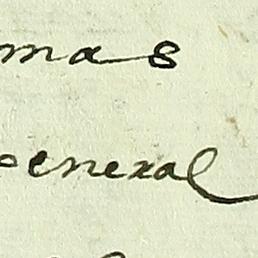 mas
general